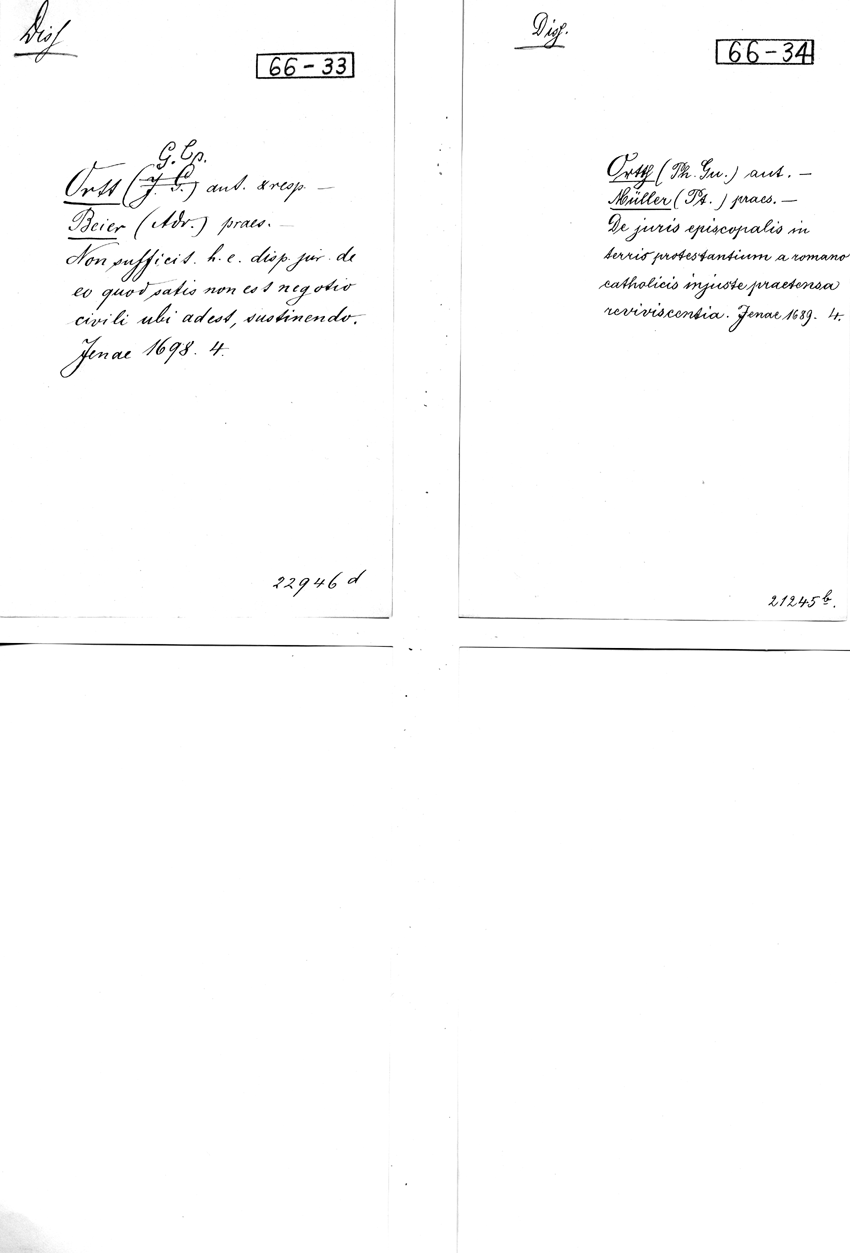 Diss
66-33
G. Cp.
Ortt (J. G.) aut. & resp. —
Beier (Adr.) praes. —
Non sufficit. h. e. disp. jur. de
eo quod satis non est negotio
civili ubi adest, sustinendo.
Jenae 1698. 4.
22946 d
Diss.
66-34
Ortth (Th. Gu.) aut. —
Müller (Pt.) praes. —
De juris episcopalis in
terris protestantium a romano
catholicis injuste praetensa
reviviscentia. Jenae 1689. 4.
21245 b.